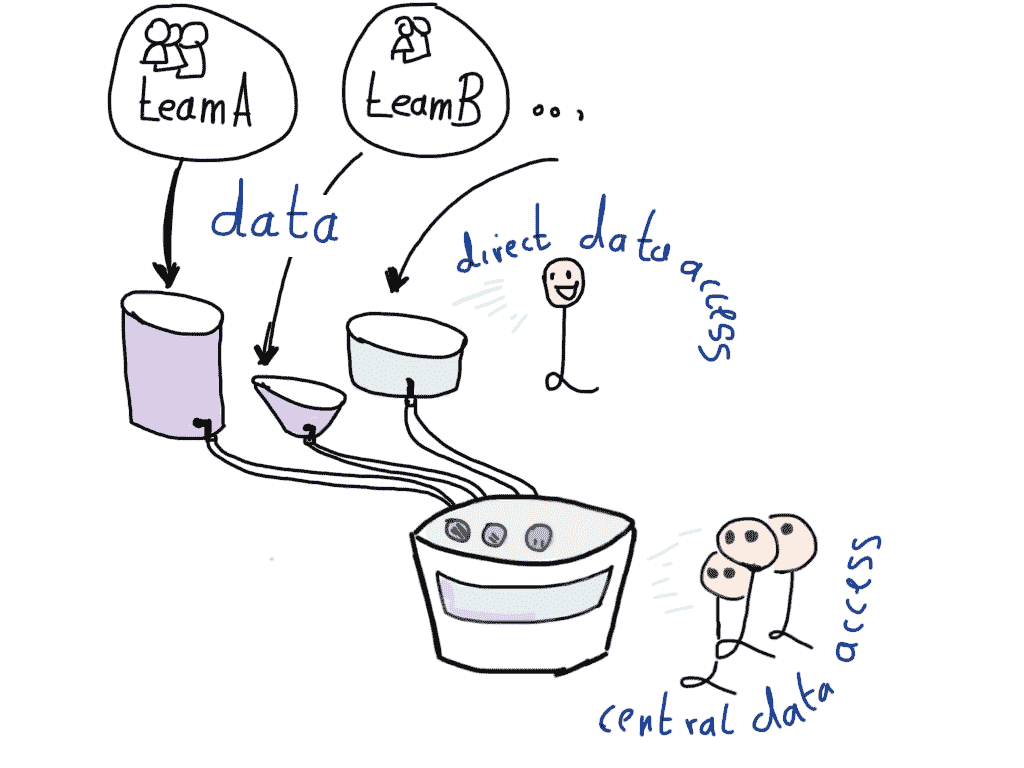 team A
team B
...
data
direct data access
central data access